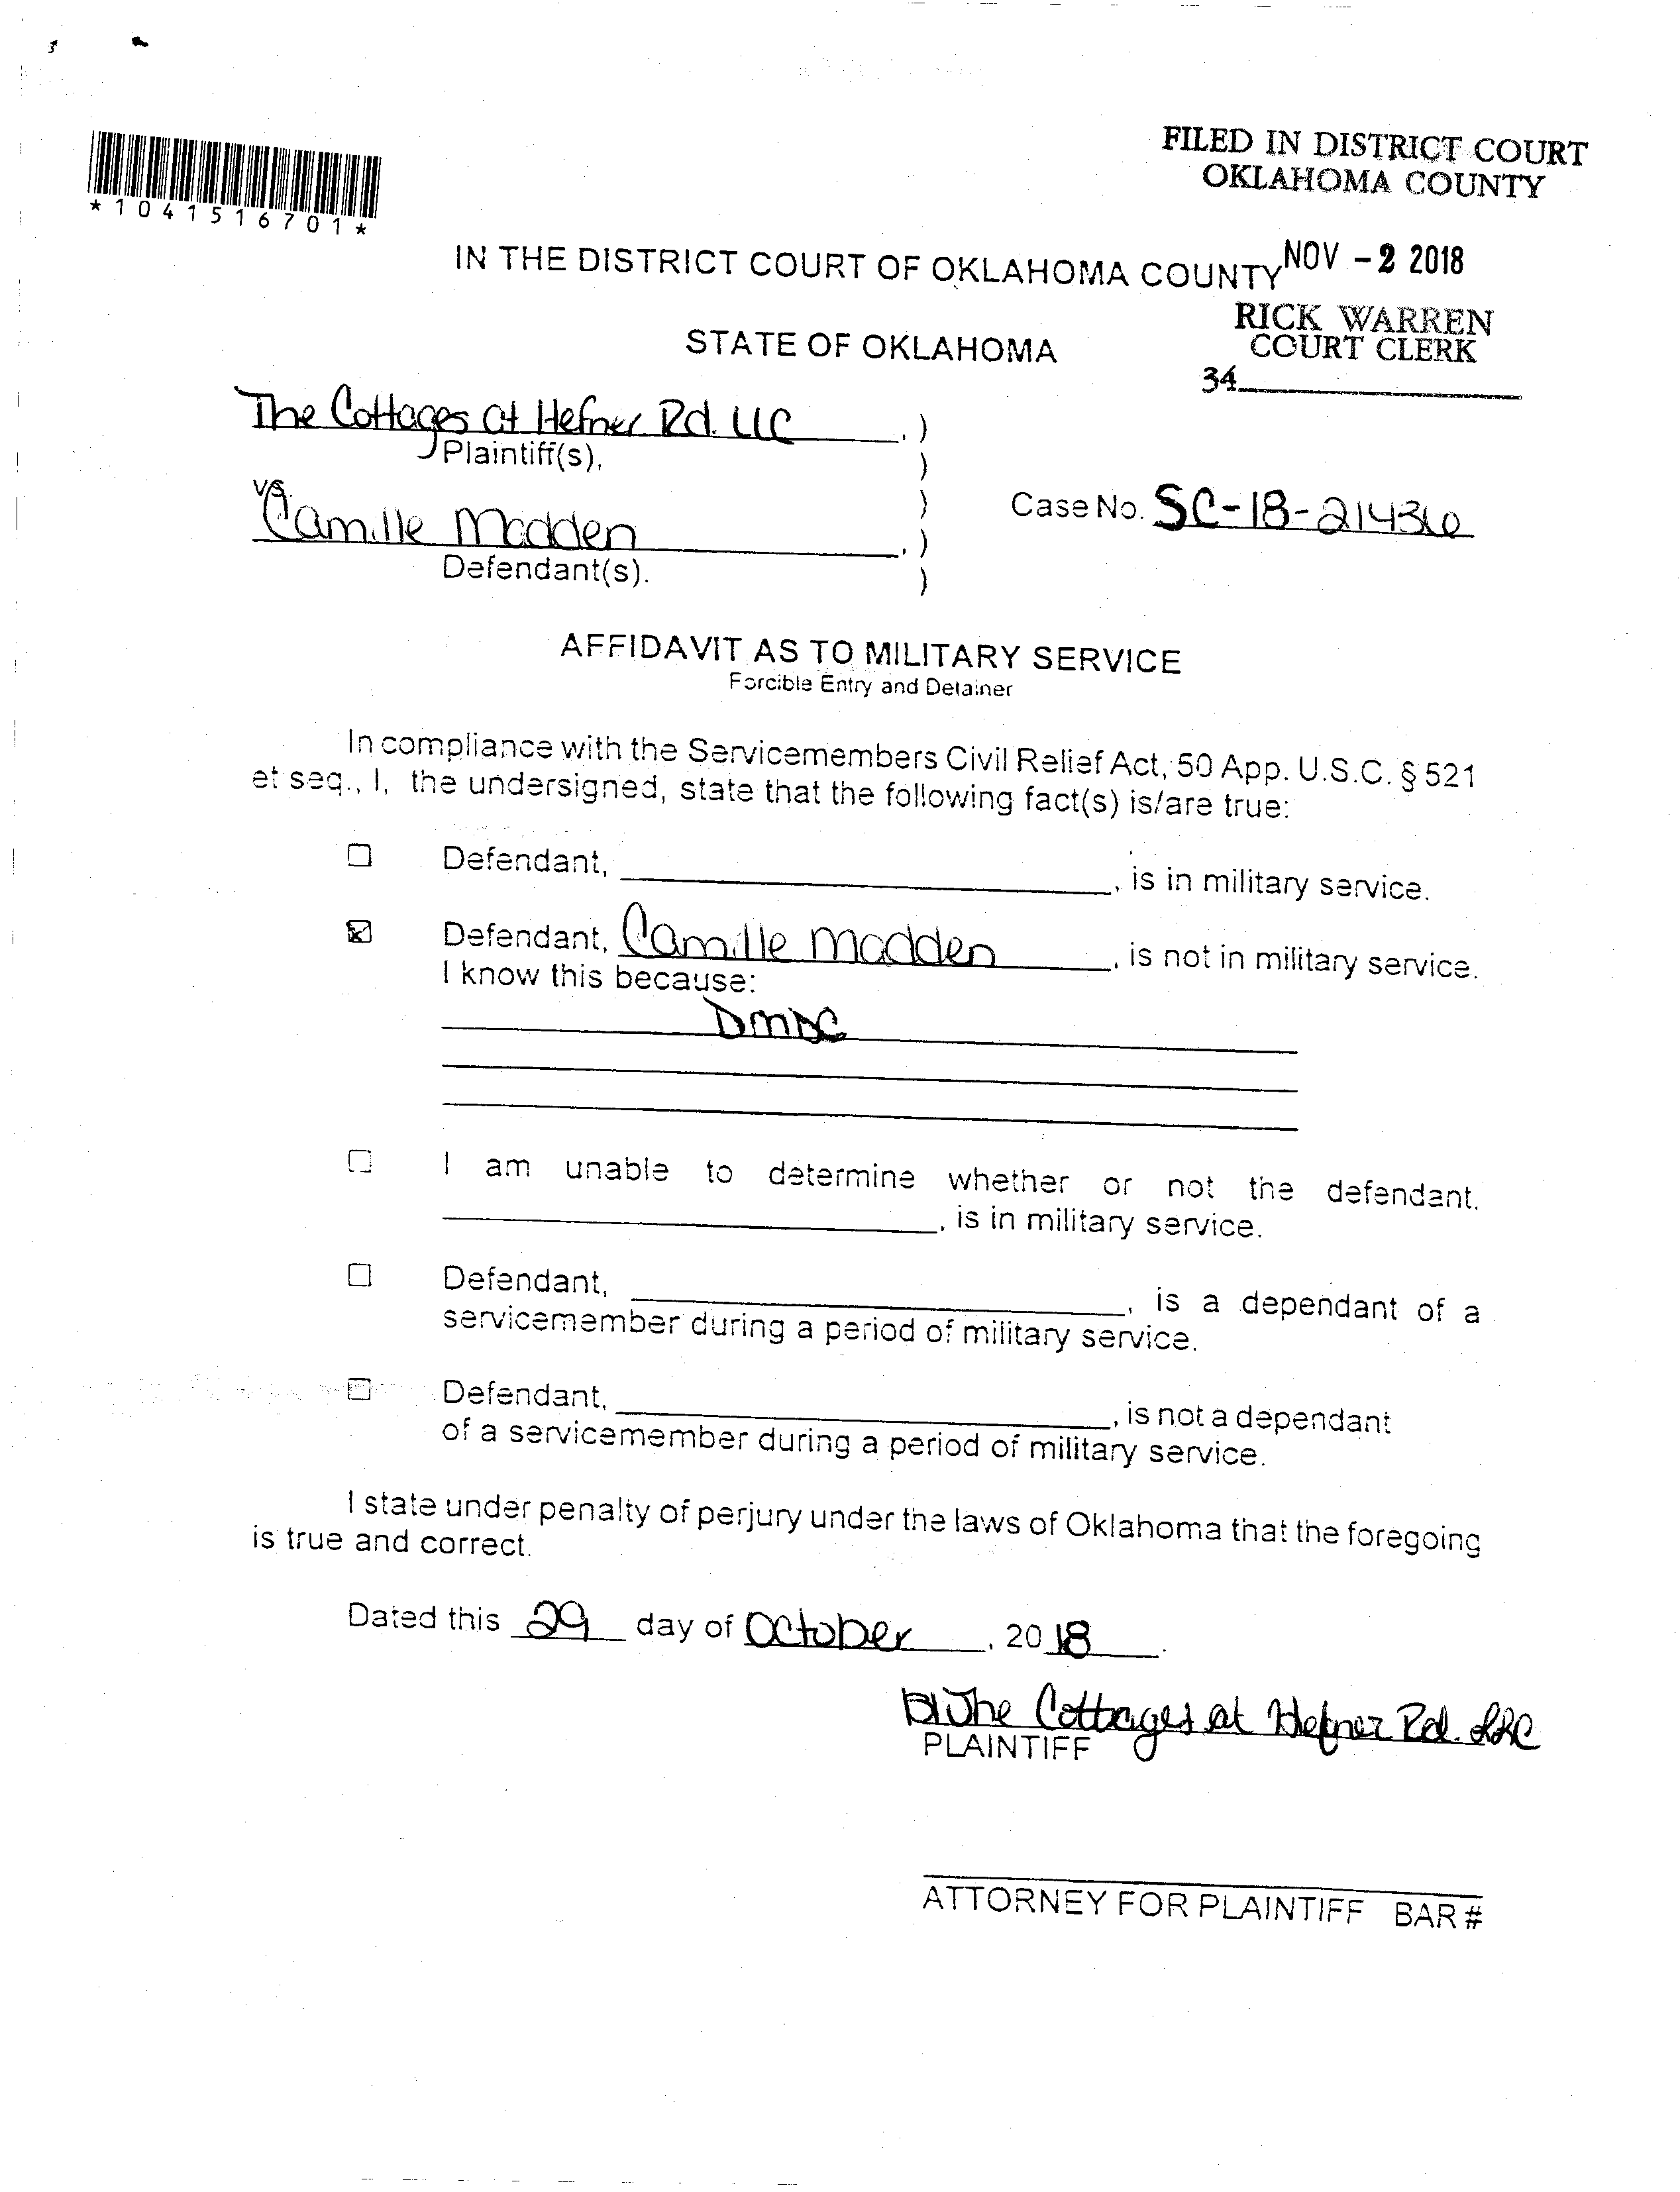 FILED IN DISTRICT COURT
OKLAHOMA COUNTY
*1041516701*
IN THE DISTRICT COURT OF OKLAHOMA COUNTY
NOV - 2 2018
STATE OF OKLAHOMA
RICK WARREN
COURT CLERK
34
The Cottages at Hefner Rd. LLC , )
Plaintiff(s), )
vs. )
Case No. SC-18-21436
Camille Madden , )
Defendant(s). )
AFFIDAVIT AS TO MILITARY SERVICE
Forcible Entry and Detainer
In compliance with the Servicemembers Civil Relief Act, 50 App. U.S.C. § 521
et seq., I, the undersigned, state that the following fact(s) is/are true:
Defendant, , is in military service.
Defendant, Camille Madden , is not in military service.
I know this because:
DMDC
I am unable to determine whether or not the defendant,
, is in military service.
Defendant, , is a dependant of a
servicemember during a period of military service.
Defendant, , is not a dependant
of a servicemember during a period of military service.
I state under penalty of perjury under the laws of Oklahoma that the foregoing
is true and correct.
Dated this 29 day of October , 20 18 .
The Cottages at Hefner Rd. LLC
PLAINTIFF
ATTORNEY FOR PLAINTIFF BAR #